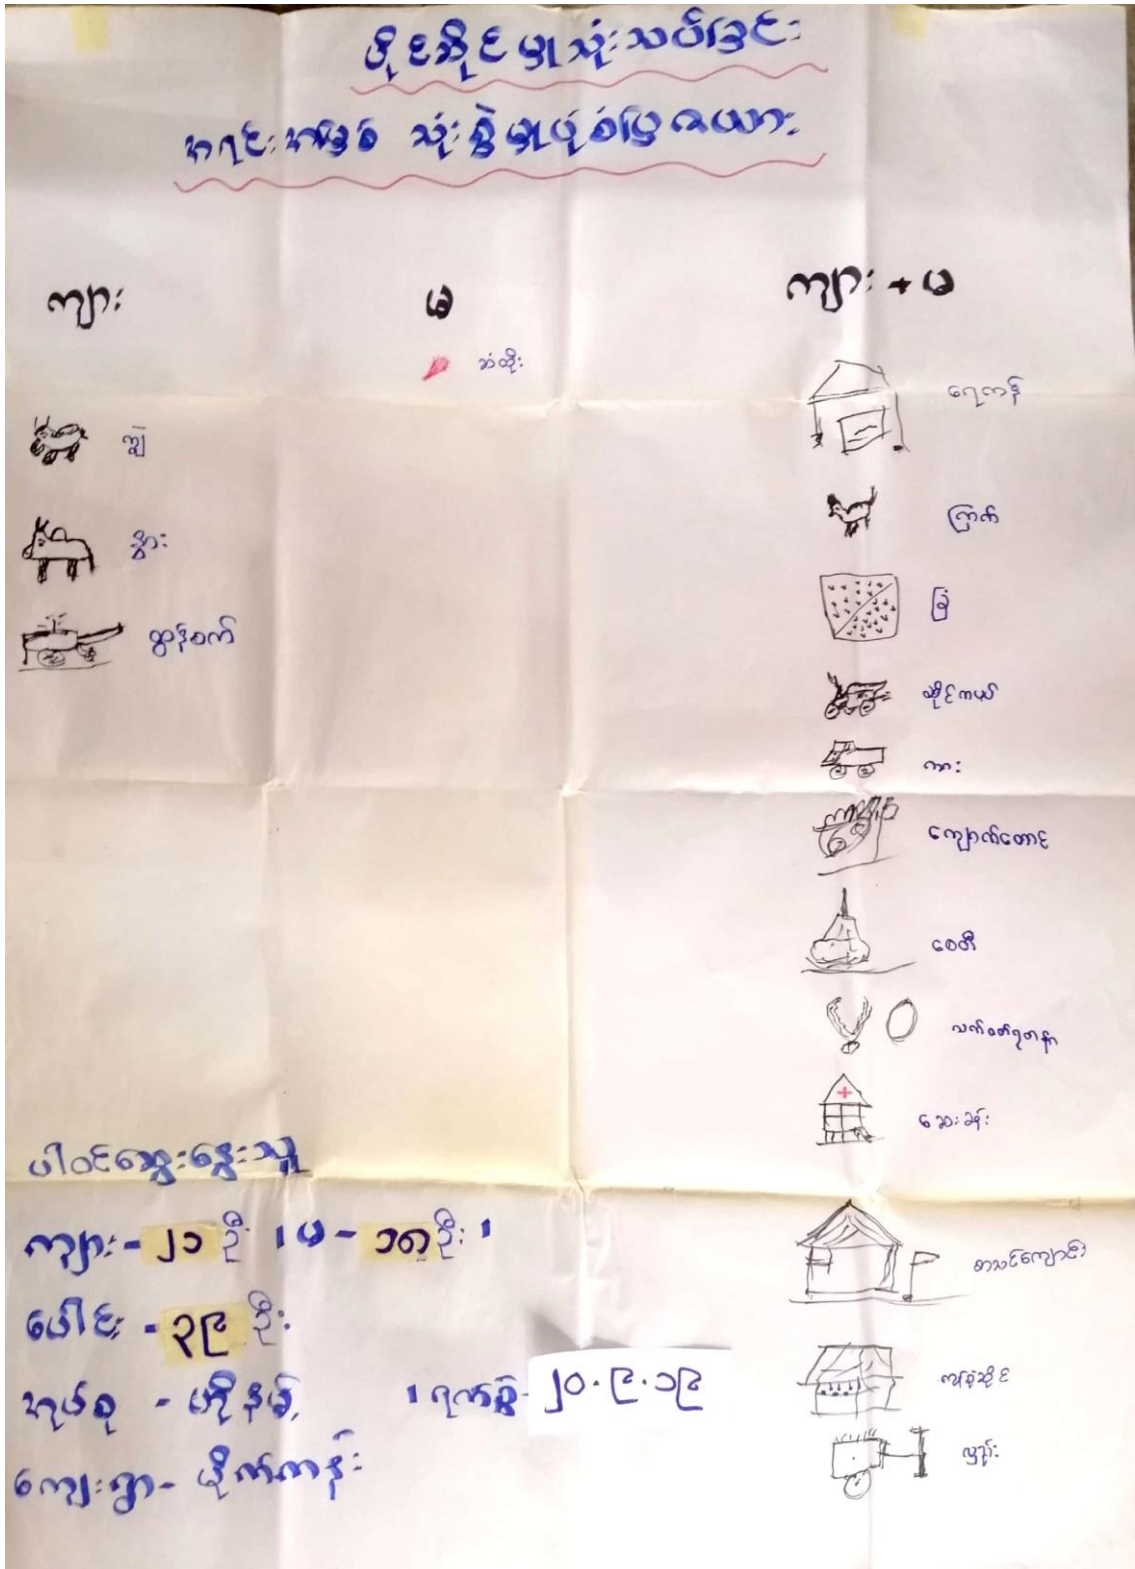 ပိုင်ဆိုင်မှုသုံးသပ်ခြင်း
အရင်းအမြစ် သုံးစွဲမှုပုံစံပြဇယား
ကျား
မ
ကျား + မ
ဆံထိုး
ကျွဲ
နွား
ထွန်စက်
ရေကန်
ကြက်
ခြံ
ဆိုင်ကယ်
ကား
ကျောက်တောင်
စေတီ
လက်ဝတ်ရတနာ
ဆေးခန်း
စာသင်ကျောင်း
ကုန်စုံဆိုင်
လှည်း
ပါဝင်ဆွေးနွေးသူ
ကျား - ၂၁ ဦး ၊ မ - ၁၈ ဦး ၊
ပေါင်း - ၃၉ ဦး
အုပ်စု - ၊ ရက်စွဲ - ၂၀.၉.၁၉
ကျေးရွာ -